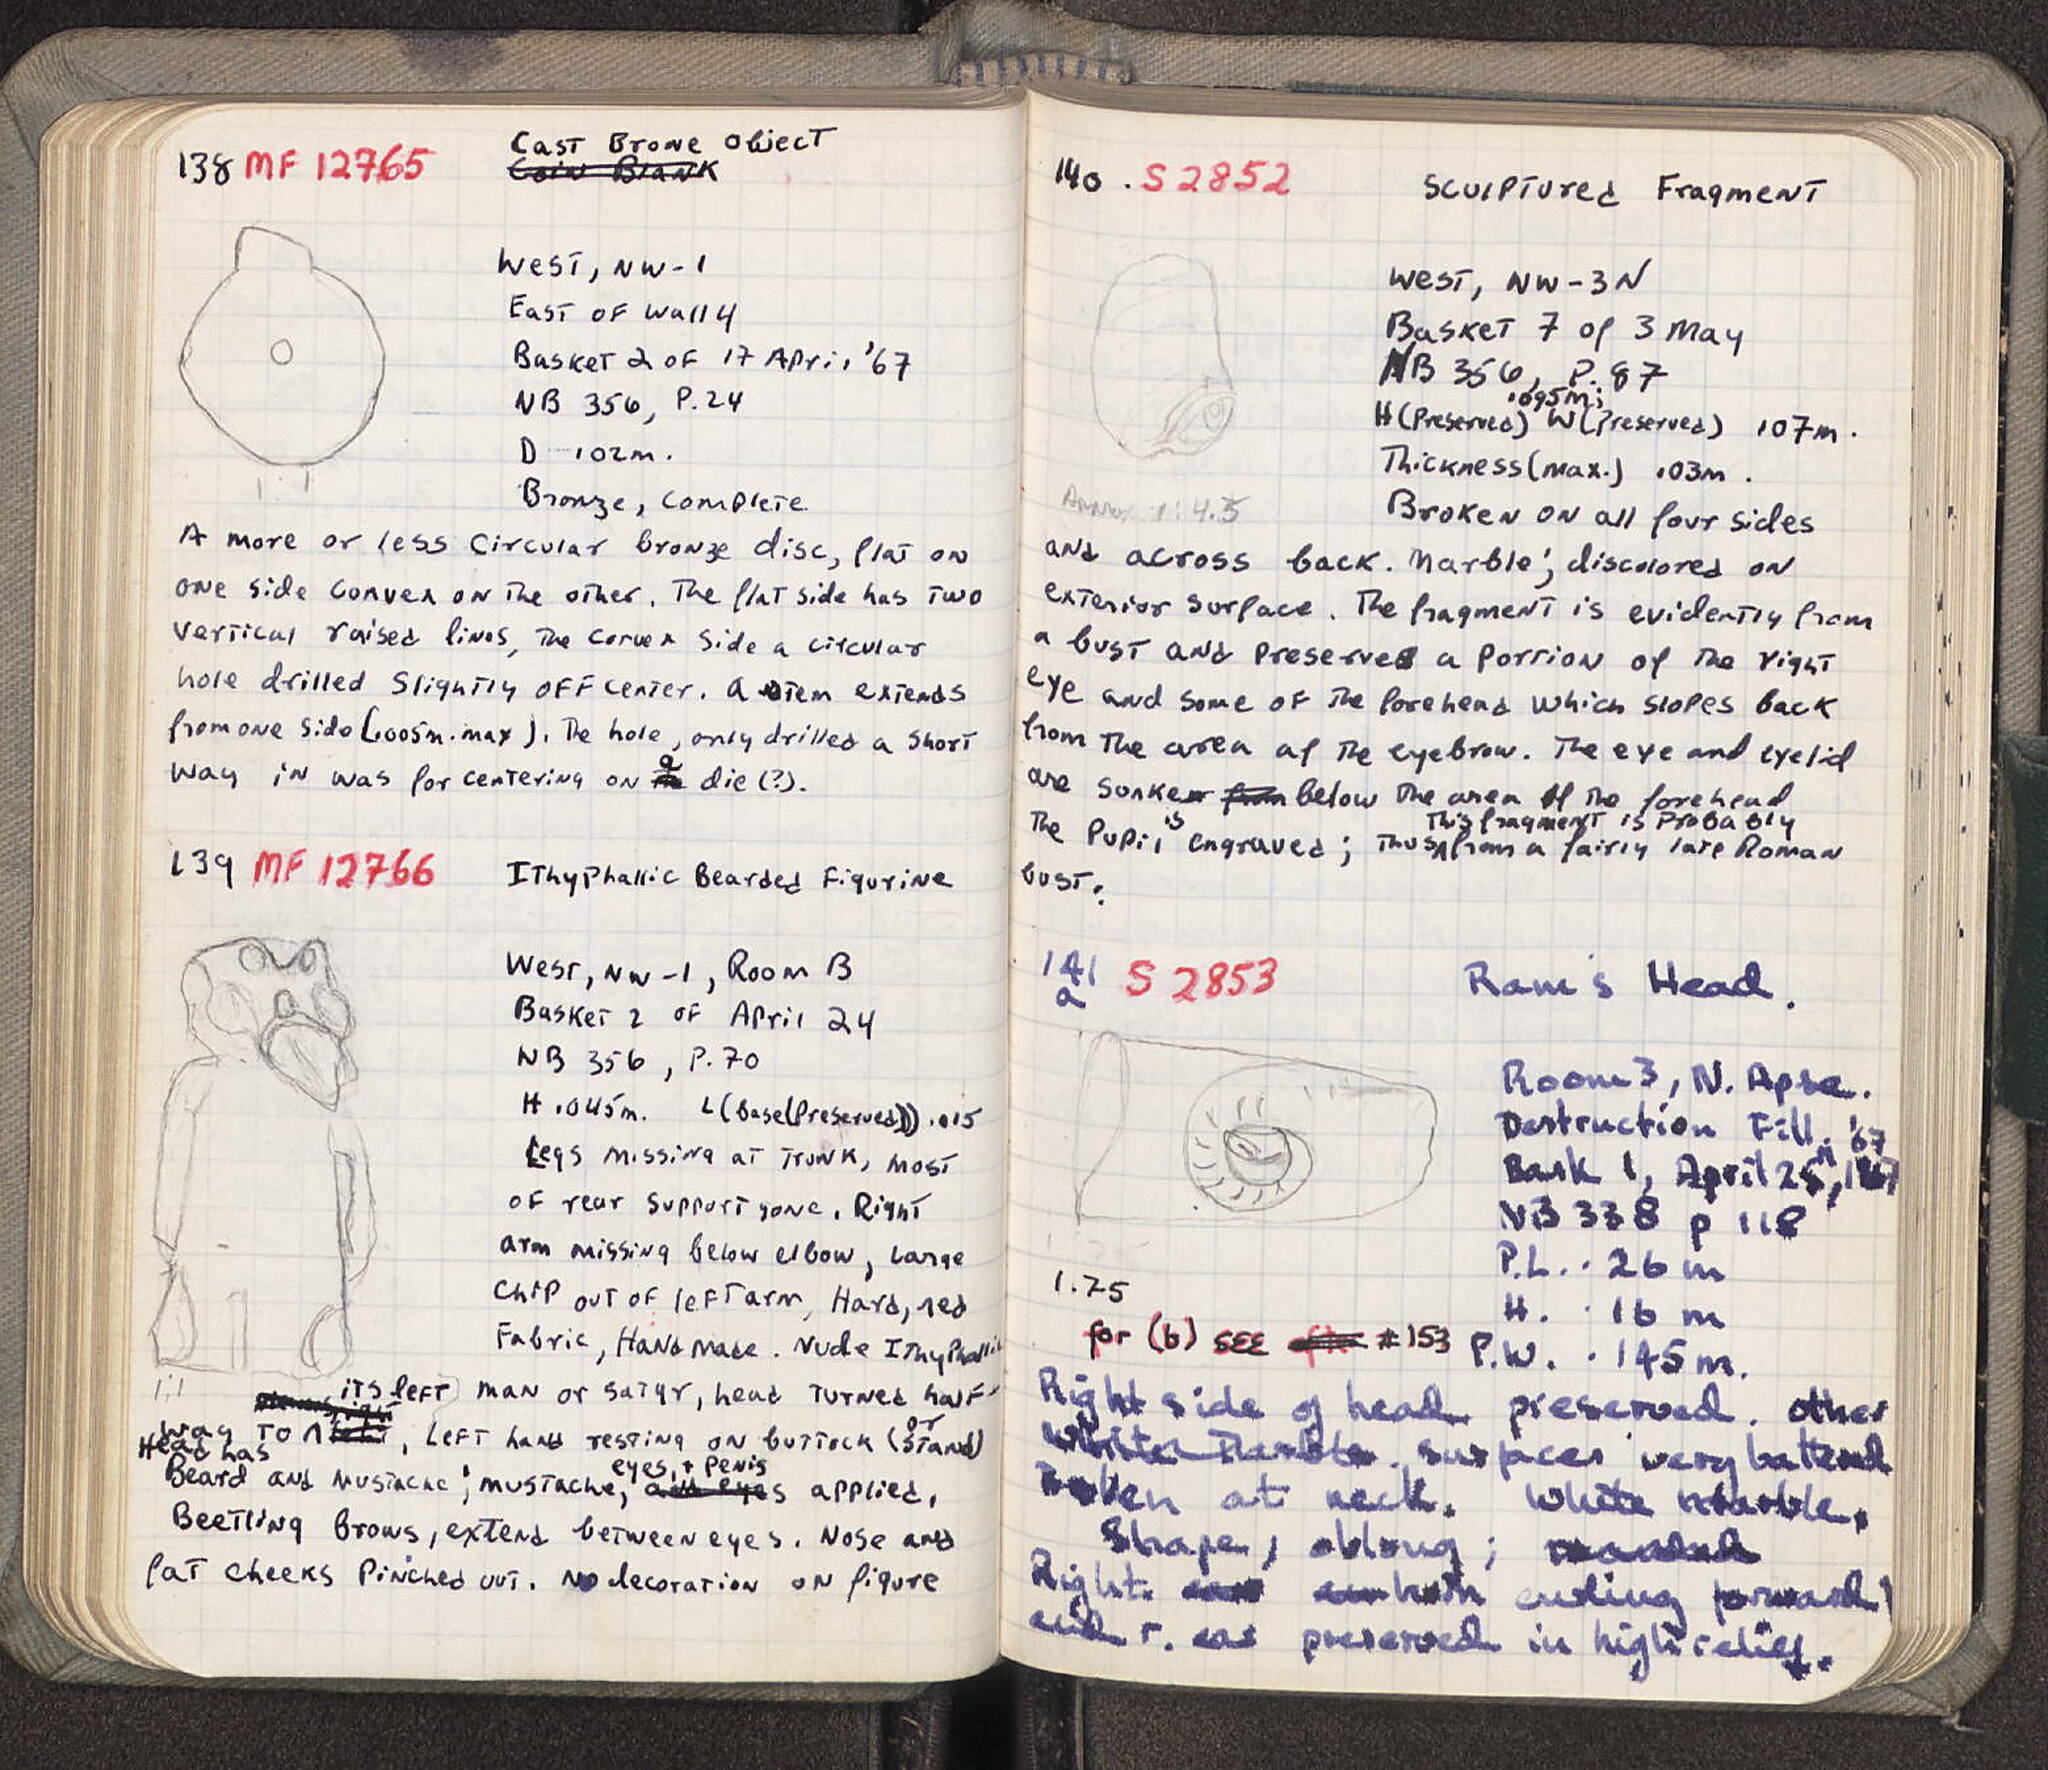 138 MF 12765 Cast Brone Object
Coin Blank
West, NW-1
East of Wall 4
Basket 2 of 17 April '67
NB 356, P. 24
D .02m.
Bronze, complete
1:1
A more or less circular bronze disc, flat on
one side convex on the other. The flat side has two
vertical raised lines, the convex side a circular
hole drilled slightly off center. A stem extends
from one side (.005m. max). The hole, only drilled a short
way in was for centering on a die (?).
139 MF 12766 Ithyphallic Bearded Figurine
West, NW-1, Room B
Basket 2 of April 24
NB 356, P. 70
H .045m. L (base (preserved)) .015
Legs missing at trunk, most
of rear support gone. Right
arm missing below elbow, large
chip out of left arm, Hard, red
Fabric, Handmade. Nude Ithyphallic
1:1
its left man or satyr, head turned half-
way to, left hand resting on buttock (or stand)
Head has
Beard and mustache; mustache, eyes, + penis applied,
Beetling brows, extend between eyes. Nose and
fat cheeks pinched out. No decoration on figure
140. S 2852 Sculptured Fragment
West, NW-3N
Basket 7 of 3 May
NB 356, P. 87
H (preserved) .095m; W (preserved) .107m.
Thickness (max.) .03m.
1:4.5
Broken on all four sides
and across back. Marble; discolored on
exterior surface. The fragment is evidently from
a bust and preserves a portion of the right
eye and some of the forehead which slopes back
from the area of the eyebrow. The eye and eyelid
are sunken from below the area of the forehead
The pupil is engraved; thus this fragment is probably from a fairly late Roman
bust.
141 a S 2853 Ram's Head.
Room 3, N. Apse.
Destruction Fill. '67
Bask 1, April 25, 1967
NB 338 p 118
P.L. .26 m
H. .16 m
P.W. .145 m.
1.75
for (b) see #153
Right side of head preserved. Other
White marble. surfaces very battered
Broken at neck. White marble.
Shape, oblong;
Right horn ending forward
and r. ear preserved in high relief.